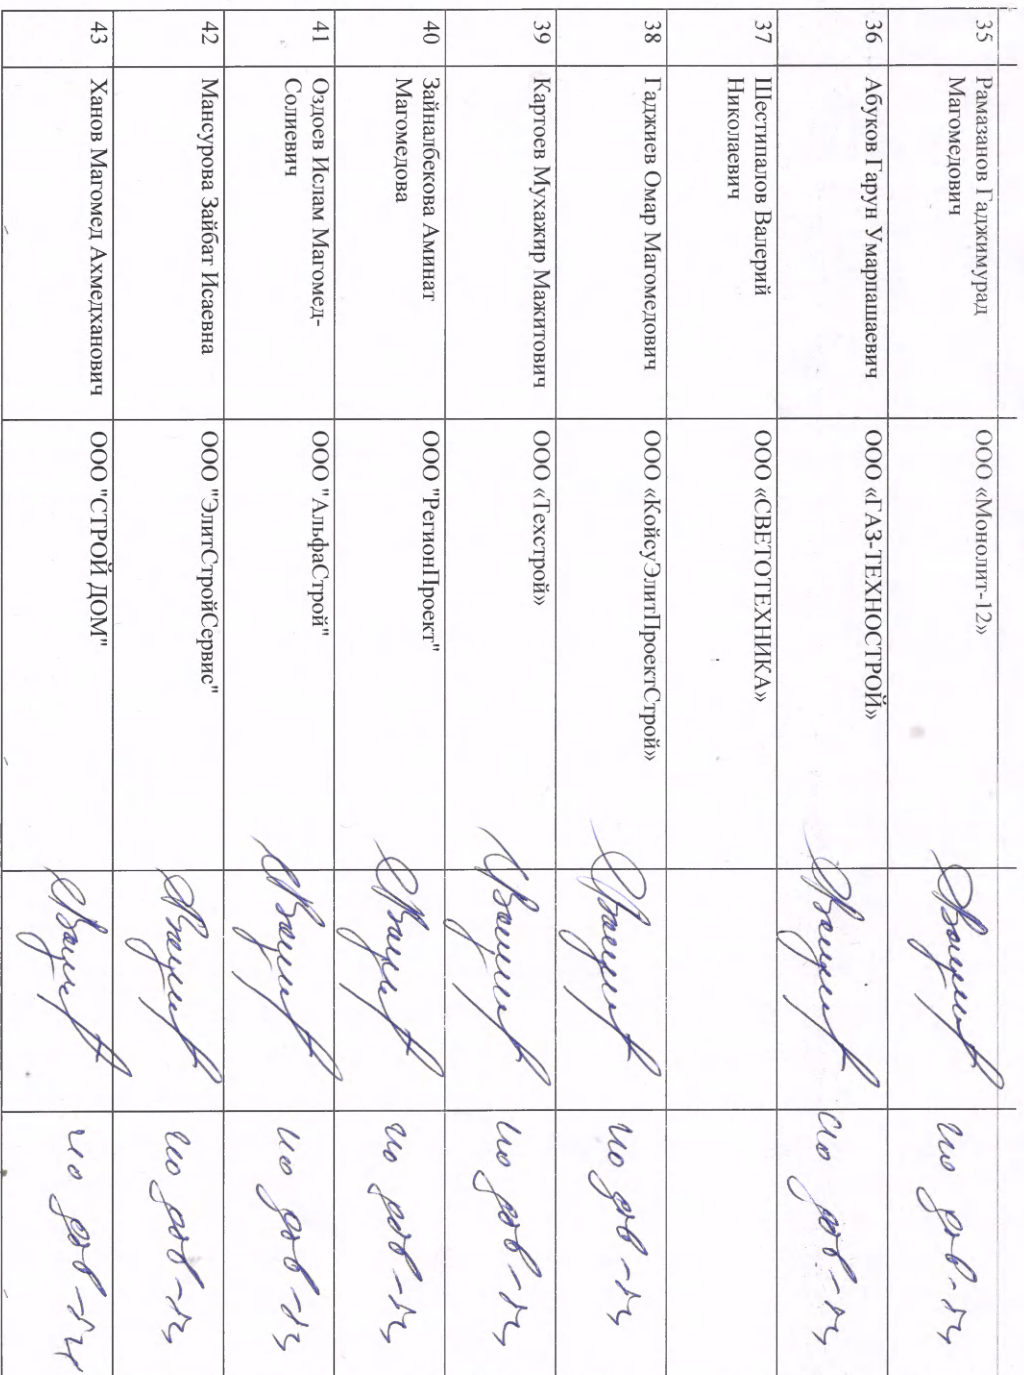 35
Рамазанов Гаджимурад
Магомедович
ООО «Монолит-12»
по дов-ти
36
Абуков Гарун Умарпашаевич
ООО «ГАЗ-ТЕХНОСТРОЙ»
по дов-ти
37
Шестипалов Валерий
Николаевич
ООО «СВЕТОТЕХНИКА»
38
Гаджиев Омар Магомедович
ООО «КойсуЭлитПроектСтрой»
по дов-ти
39
Картоев Мухажир Мажитович
ООО «Техстрой»
по дов-ти
40
Зайналбекова Аминат
Магомедова
ООО "РегионПроект"
по дов-ти
41
Оздоев Ислам Магомед-
Солиевич
ООО "АльфаСтрой"
по дов-ти
42
Мансурова Зайбат Исаевна
ООО "ЭлитСтройСервис"
по дов-ти
43
Ханов Магомед Ахмедханович
ООО "СТРОЙ ДОМ"
по дов-ти